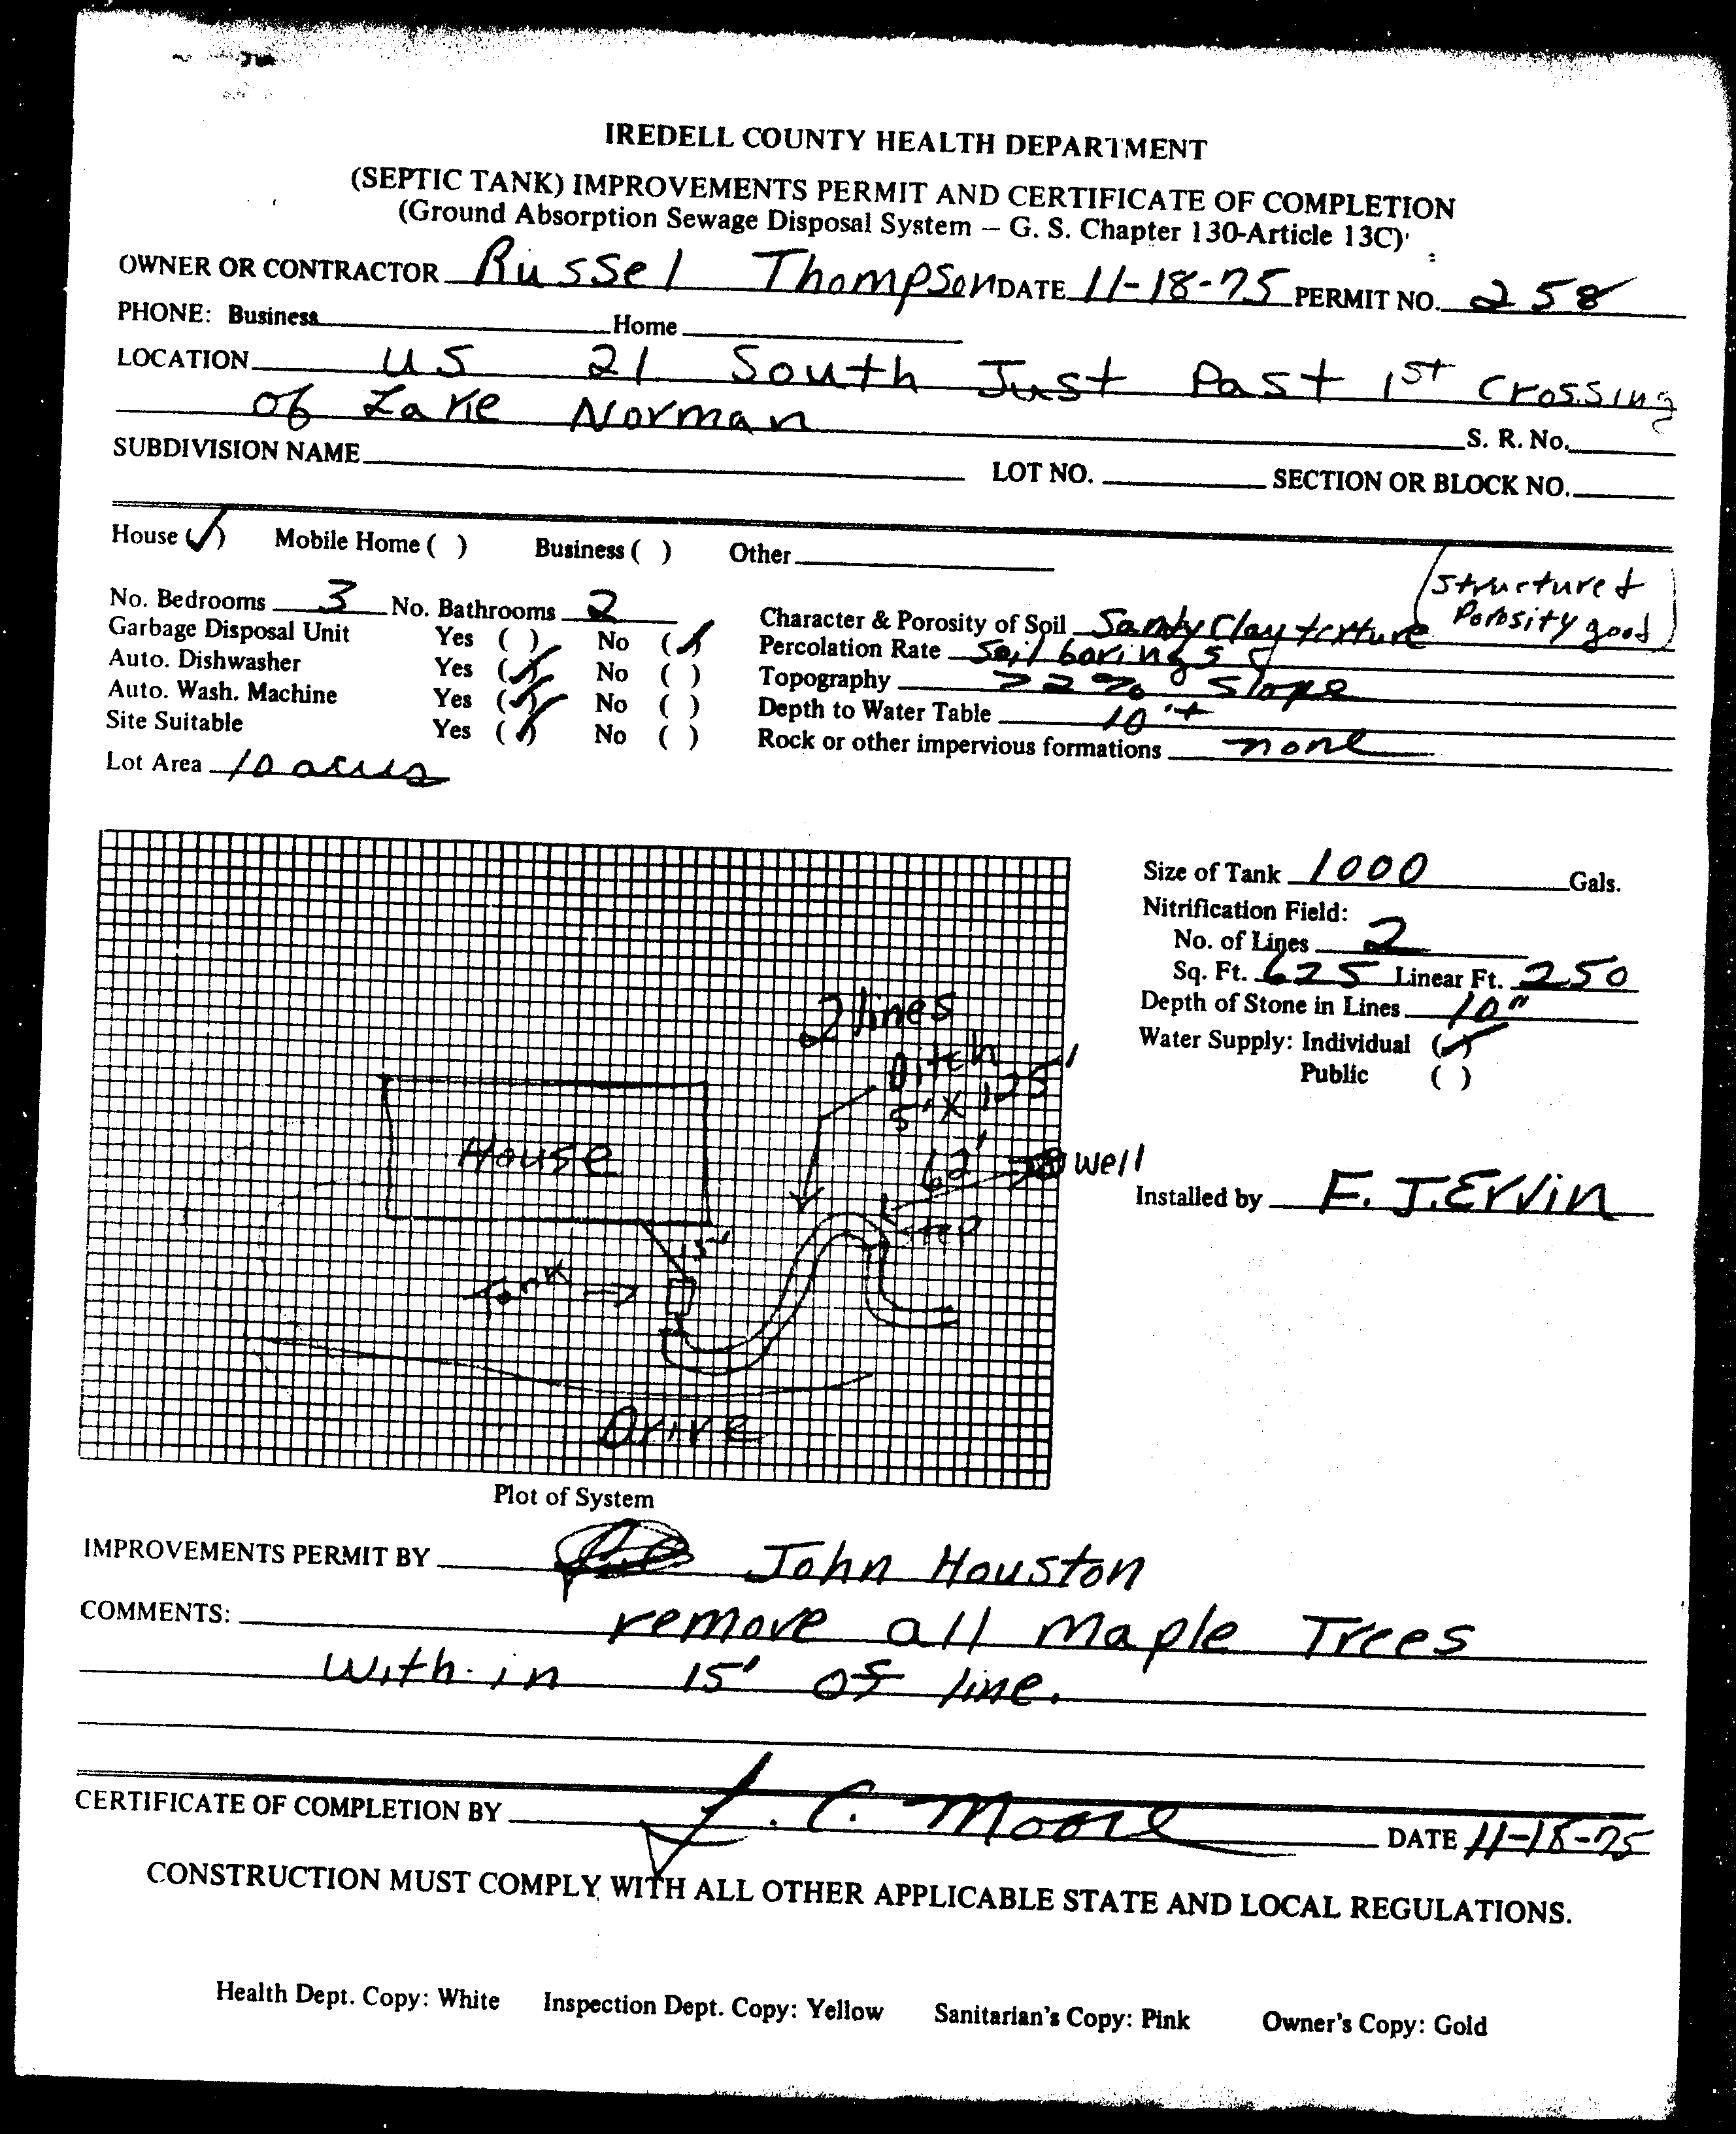 IREDELL COUNTY HEALTH DEPARTMENT
(SEPTIC TANK) IMPROVEMENTS PERMIT AND CERTIFICATE OF COMPLETION
(Ground Absorption Sewage Disposal System – G. S. Chapter 130-Article 13C)
OWNER OR CONTRACTOR Russel Thompson DATE 11-18-75 PERMIT NO. 258
PHONE: Business Home
LOCATION US 21 South Just Past 1st Crossing
of Lake Norman S. R. No.
SUBDIVISION NAME LOT NO. SECTION OR BLOCK NO.
House (✓) Mobile Home ( ) Business ( ) Other
Structure &
Porosity good
No. Bedrooms 3 No. Bathrooms 2 Character & Porosity of Soil Sandy Clay texture
Garbage Disposal Unit Yes ( ) No (✓) Percolation Rate Soil borings
Auto. Dishwasher Yes (✓) No ( ) Topography >2% Slope
Auto. Wash. Machine Yes (✓) No ( ) Depth to Water Table 10'+
Site Suitable Yes (✓) No ( ) Rock or other impervious formations none
Lot Area 10 acres
Size of Tank 1000 Gals.
Nitrification Field:
No. of Lines 2
Sq. Ft. 625 Linear Ft. 250
Depth of Stone in Lines 10"
Water Supply: Individual (✓)
Public ( )
Installed by F. J. Ervin
2 lines
Ditch
5' X 125'
62'
well
House
15'
Tank
Drive
Plot of System
IMPROVEMENTS PERMIT BY John Houston
COMMENTS: remove all Maple Trees
with-in 15' of line.
CERTIFICATE OF COMPLETION BY J. C. Moore DATE 11-18-75
CONSTRUCTION MUST COMPLY WITH ALL OTHER APPLICABLE STATE AND LOCAL REGULATIONS.
Health Dept. Copy: White Inspection Dept. Copy: Yellow Sanitarian's Copy: Pink Owner's Copy: Gold